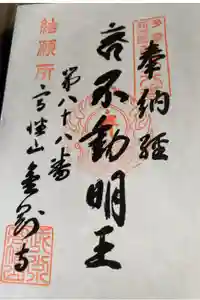 奉納経
不動明王
第八十八番
高幡山金剛寺
結願所